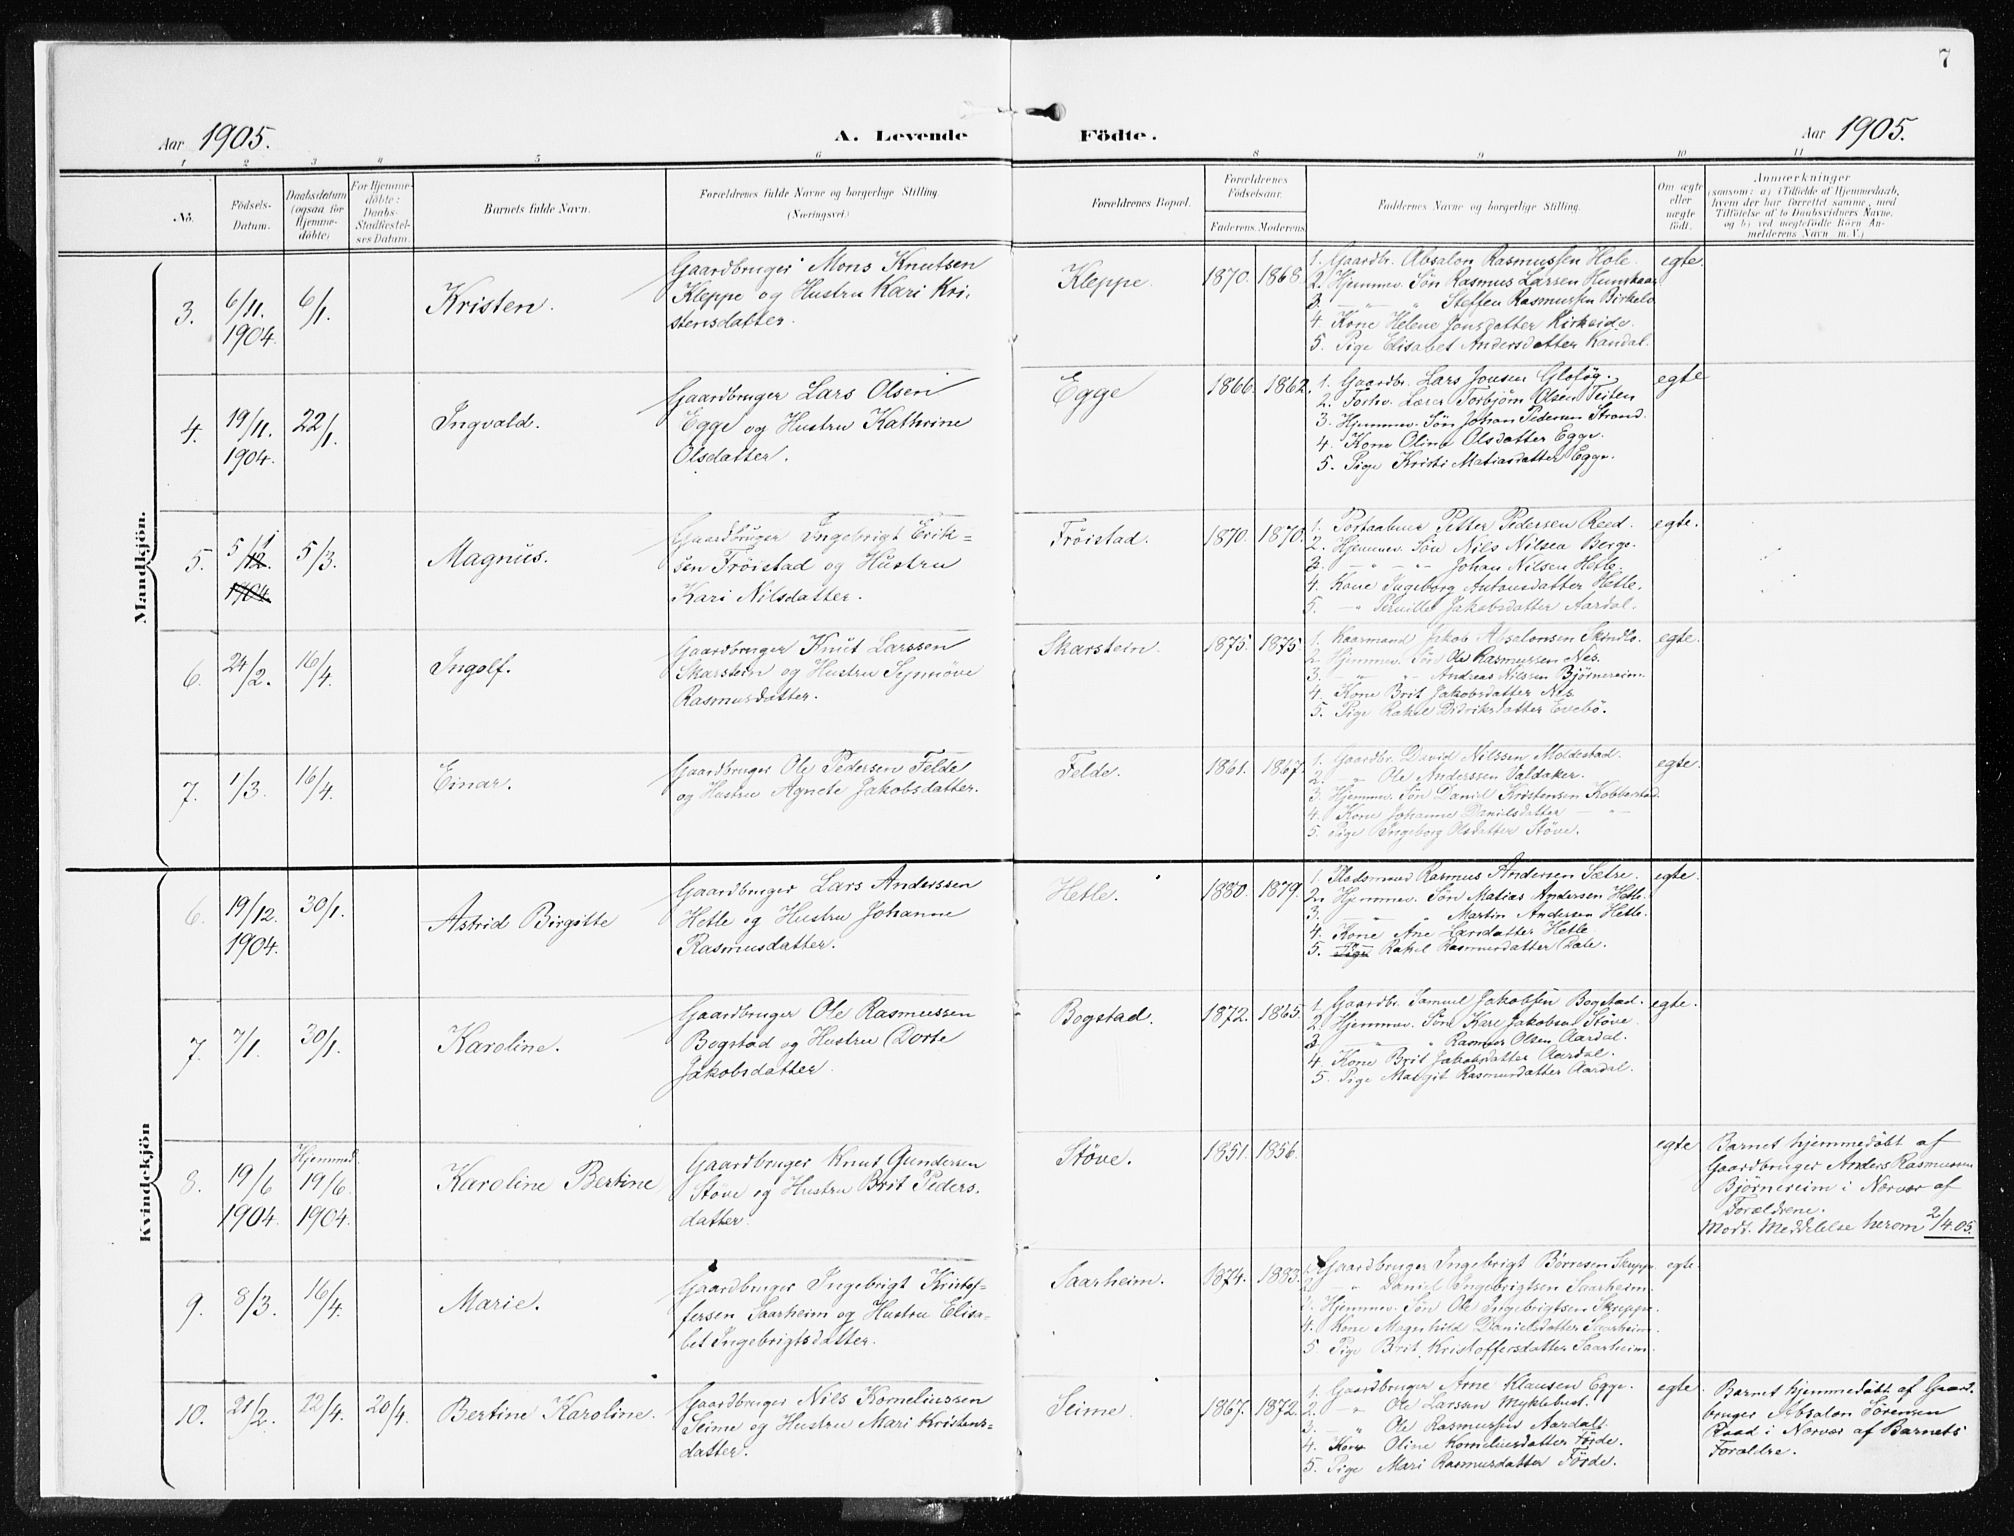 7
Aar 1905.
A. Levende
Födte.
Aar 1905.
1 2 3 4 5 6 8 9 10 11
No.
Födsels-
Datum.
Daabsdatum
(ogsaa for
Hjemme-
döbte)
For Hjemme-
döbte:
Daabs-
Stadfæstel-
ses Datum.
Barnets fulde Navn.
Forældrenes fulde Navne og borgerlige Stilling
(Næringsvei)
Forældrenes Bopæl.
Forældrenes
Födselsaar.
Faderens. Moderens.
Faddernes Navne og borgerlige Stilling.
Om ægte
eller
uægte
födt.
Anmærkninger
(saasom: a) i Tilfælde af Hjemmedaab,
hvem der har forrettet samme, med
Tilföielse af to Daabsvidners Navne,
og b) ved uægtefödte Börn An-
melderens Navn m. V.)
Mandkjön.
3.
6/11.
1904.
6/1.
Kristen.
Gaardbruger Mons Knutsen
Kleppe og Hustru Kari Kri-
stensdatter.
Kleppe.
1870. 1868.
1. Gaardbr. Absalon Rasmussen Hole.
2. Hjemmev. Søn Rasmus Larsen Hunskaar
3. — " — " Steffen Rasmussen Birkelo
4. Kone Helene Jonsdatter Kirkeide.
5. Pige Elisabet Andersdatter Kandal.
egte.
4.
19/11.
1904.
22/1.
Ingvald.
Gaardbruger Lars Olsen
Egge og Hustru Kathrine
Olsdatter.
Egge
1866. 1862.
1. Gaardbr. Lars Jonsen Gloføg.
2. Forhv. Lærer Torbjørn Olsen Teiten
3. Hjemmev. Søn Johan Pedersen Strand.
4. Kone Oline Olsdatter Egge.
5. Pige Kristi Matiasdatter Egge.
egte
5.
5/1
12.
1904.
5/3.
Magnus.
Gaardbruger Ingebrigt Erik-
sen Frøistad og Hustru
Kari Nilsdatter.
Frøistad.
1870. 1870.
1. Petter Pedersen Reed.
2. Hjemmev. Søn Nils Nilsen Berge.
3. — " — " — Johan Nilsen Hetle.
4. Kone Ingeborg Antonsdatter Hetle.
5. — " Pernille Jakobsdatter Aardal.
egte.
6.
24/2.
16/4.
Ingolf.
Gaardbruger Knut Larssen
Skarstein og Hustru Synnøve
Rasmusdatter.
Skarstein.
1875. 1875.
1. Kaarmand Jakob Absalonsen Skindlo.
2. Hjemmev. Søn Ole Rasmussen Nes.
3. — " — " Andreas Nilssen Bjørnereim.
4. Kone Brit Jakobsdatter Nes.
5. Pige Rakel Didriksdatter Evebø.
egte.
7.
1/3.
16/4.
Einar.
Gaardbruger Ole Pedersen Felde
og Hustru Agnete Jakobsdatter.
Felde.
1861. 1867.
1. Gaardbr. David Nilssen Moldestad.
2. " Ole Anderssen Valdaker.
3. Hjemmev. Søn Daniel Kristensen Kobberstad.
4. Kone Johanne Danielsdatter — " —
5. Pige Ingeborg Olsdatter Støve.
egte.
Kvindekjön
6.
19/12.
1904.
30/1.
Astrid Birgitte
Gaardbruger Lars Anderssen
Hetle og Hustru Johanne
Rasmusdatter.
Hetle.
1880. 1879.
1. Pladsmand Rasmus Andersen Sætre.
2. Hjemmev. Søn Matias Andersen Hetle
3. — " — " Martin Andersen Hetle.
4. Kone Ane Larsdatter Hetle
5. Pige Rakel Rasmusdatter Dale.
egte.
7.
7/1.
30/1.
Karoline.
Gaardbruger Ole Rasmussen
Bogstad og Hustru Dorte
Jakobsdatter.
Bogstad.
1872. 1865.
1. Gaardbr. Samuel Jakobsen Bogstad.
2. Hjemmev. Søn Karl Jakobsen Støve.
3. — " — " Rasmus Olsen Aardal.
4. Kone Brit Jakobsdatter Aardal.
5. Pige Margit Rasmusdatter Aardal.
egte.
8.
19/6
1904.
Hjemmed.
19/6.
1904.
Karoline Bertine
Gaardbruger Knut Gundersen
Støve og Hustru Brit Peders-
datter.
Støve.
1851. 1856.
egte
Barnet hjemmedøbt af
Gaardbruger Anders Rasmussen
Bjørnereim i Nærvær af
Forældrene.
Modt. Meddelelse herom 2/4.05.
9.
8/3.
16/4.
Marie.
Gaardbruger Ingebrigt Kristof-
fersen Saarheim og Hustru Elisa-
bet Ingebrigtsdatter.
Saarheim.
1874. 1883.
1. Gaardbruger Ingebrigt Børresen Skreppe
2. — " Daniel Ingebrigtsen Saarheim.
3. Hjemmev. Søn Ole Ingebrigtsen Skreppe.
4. Kone Magnhild Danielsdatter Saarheim.
5. Pige Brit Kristoffersdatter Saarheim.
egte.
10.
21/2.
12/4.
20/4.
Bertine Karoline.
Gaardbruger Nils Korneliussen
Seime og Hustru Mari Kristens-
datter.
Seime.
1867. 1872.
1. Gaardbruger Arne Klausen Egge.
2. — " Ole Larssen Myklebust.
3. — " Ole Rasmussen Aardal.
4. Kone Oline Korneliusdatter Førde.
5. Pige Mari Rasmusdatter Førde.
egte
Barnet hjemmedøbt af Gaard-
bruger Absalon Sørensen
Raad i Nærvær af Barnets
Forældre.